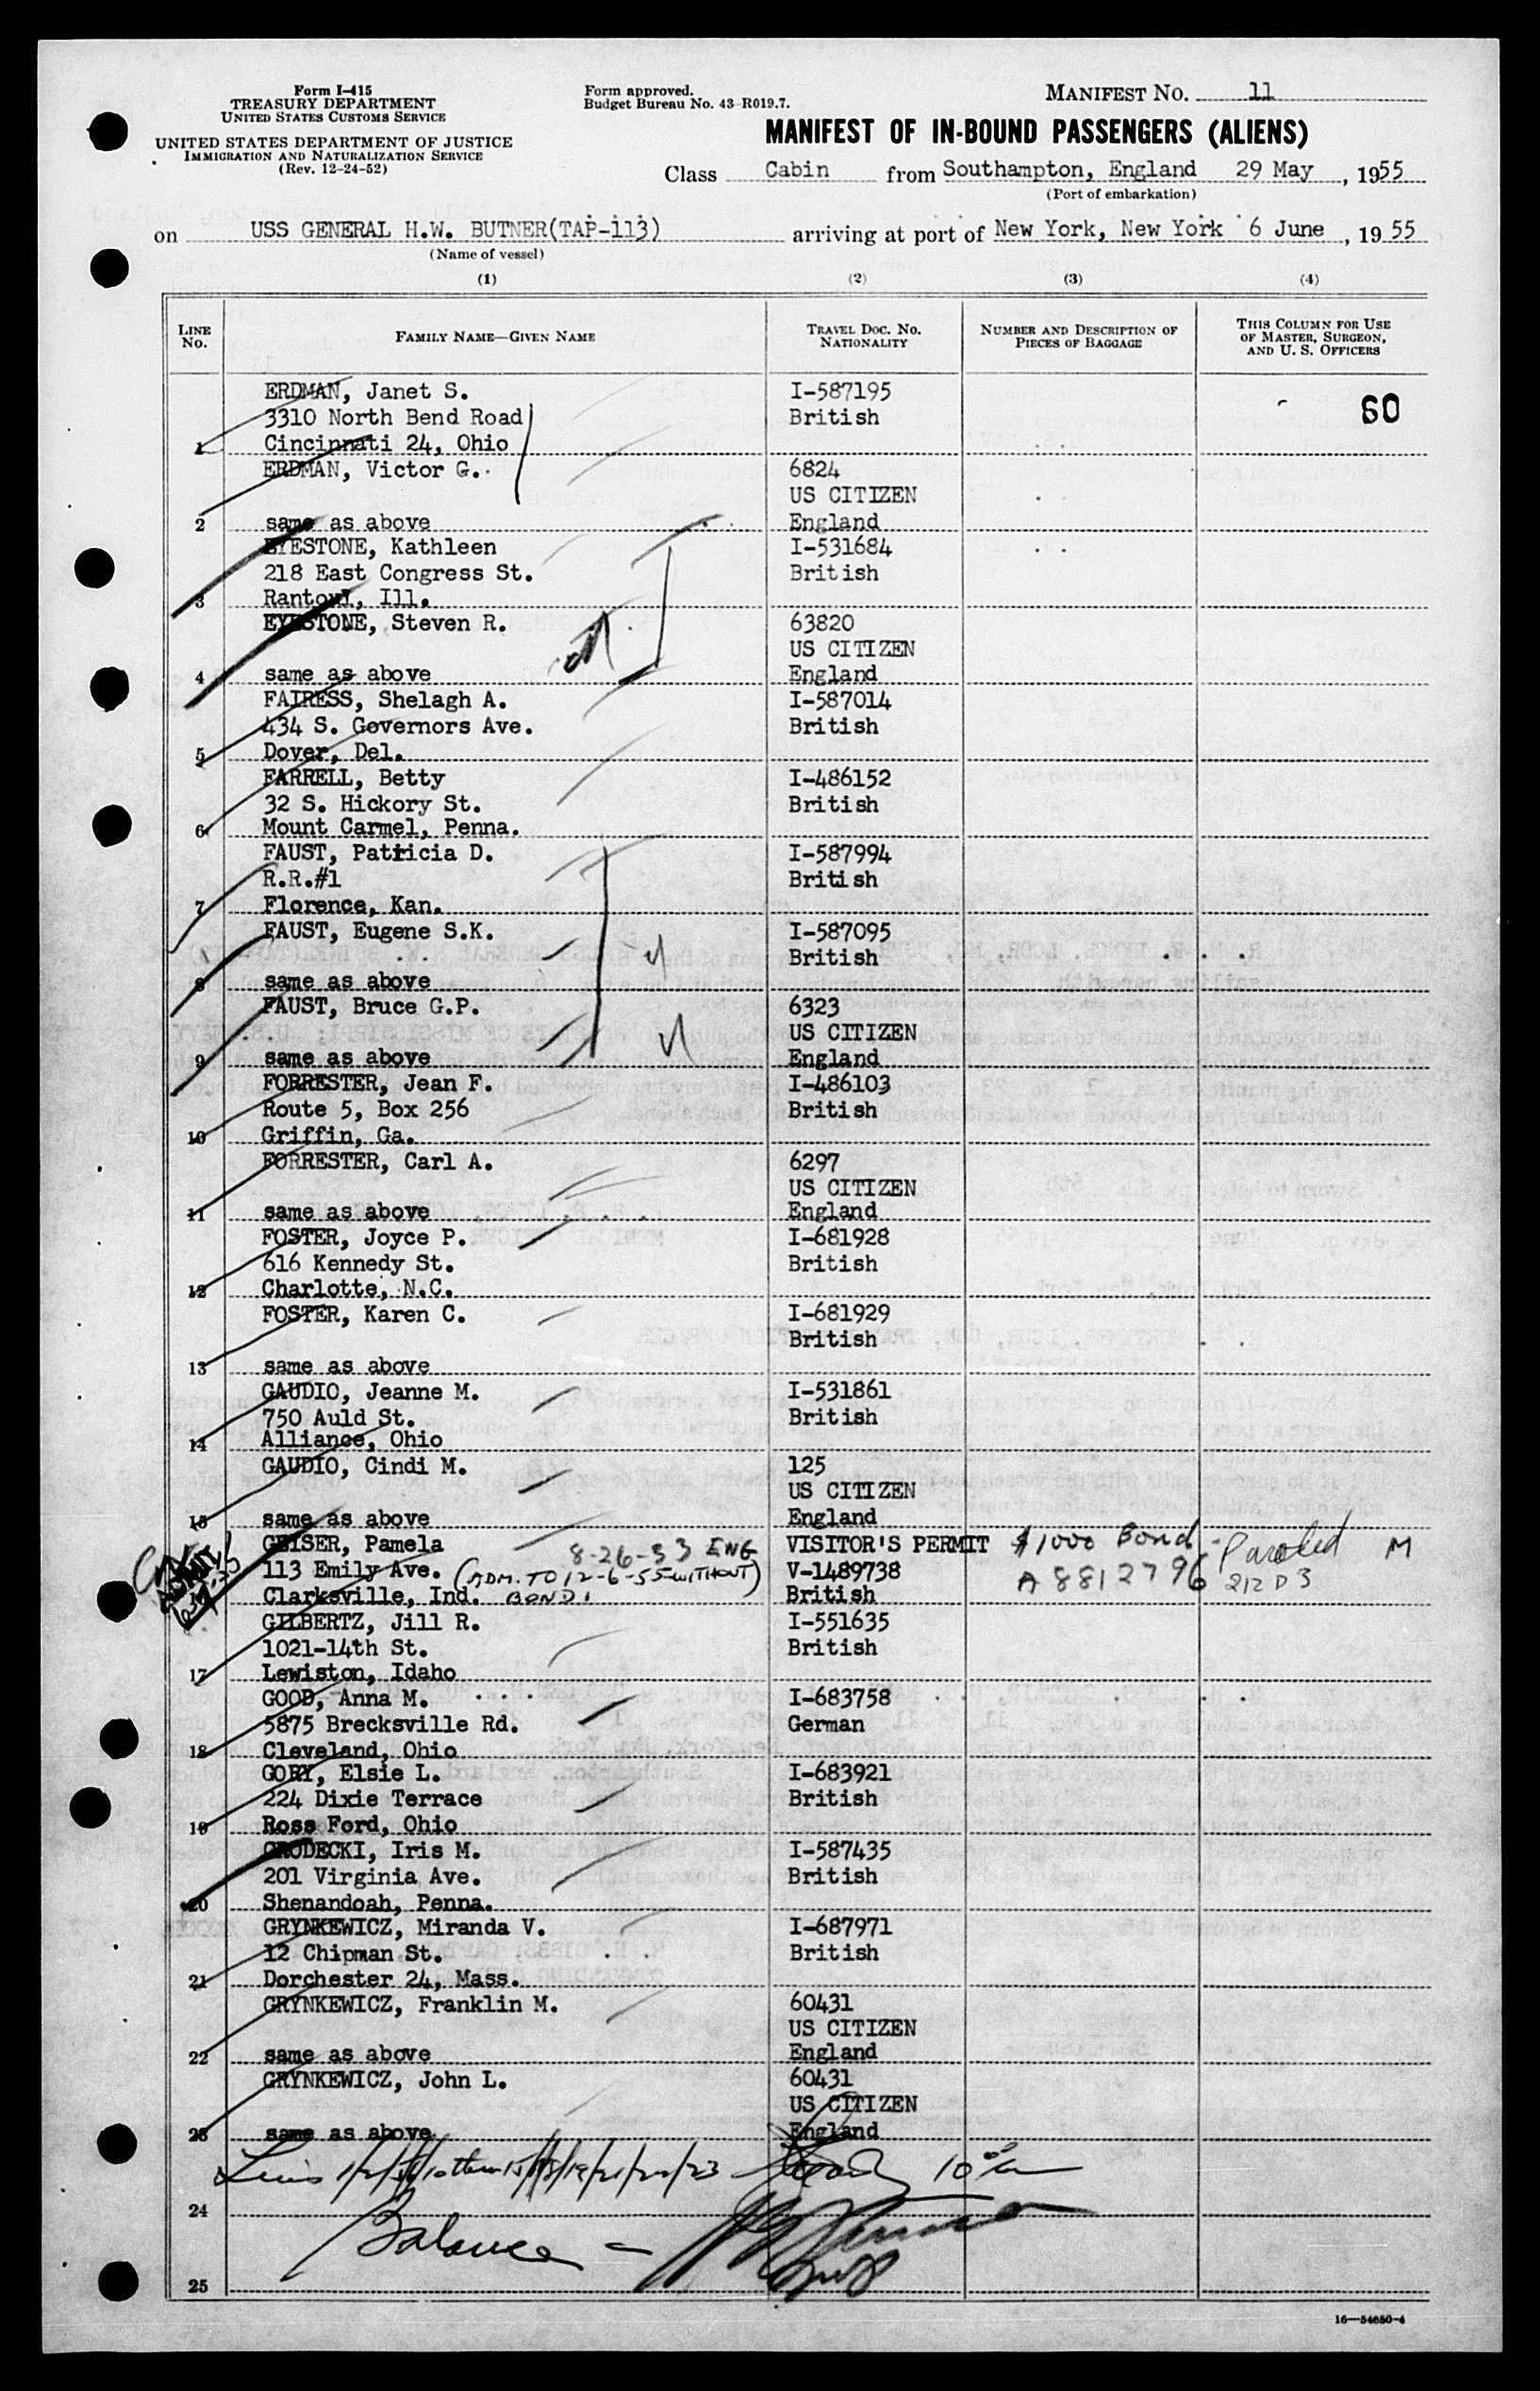 Form I-415
TREASURY DEPARTMENT
UNITED STATES CUSTOMS SERVICE
UNITED STATES DEPARTMENT OF JUSTICE
IMMIGRATION AND NATURALIZATION SERVICE
(Rev. 12-24-52)
Form approved.
Budget Bureau No. 43-R019.7.
MANIFEST NO. 11
MANIFEST OF IN-BOUND PASSENGERS (ALIENS)
Class Cabin from Southampton, England 29 May, 1955
(Port of embarkation)
on USS GENERAL H.W. BUTNER(TAP-113) arriving at port of New York, New York 6 June, 1955
(Name of vessel)
(1) (2) (3) (4)
LINE No. FAMILY NAME—GIVEN NAME TRAVEL DOC. NO. NATIONALITY NUMBER AND DESCRIPTION OF PIECES OF BAGGAGE THIS COLUMN FOR USE OF MASTER, SURGEON, AND U. S. OFFICERS
ERDMAN, Janet S. I-587195
3310 North Bend Road British 60
1 Cincinnati 24, Ohio
ERDMAN, Victor G. 6824
US CITIZEN
2 same as above England
EYESTONE, Kathleen I-531684
218 East Congress St. British
3 Rantoul, Ill.
EYESTONE, Steven R. 63820
US CITIZEN
4 same as above England
FAIRESS, Shelagh A. I-587014
434 S. Governors Ave. British
5 Dover, Del.
FARRELL, Betty I-486152
32 S. Hickory St. British
6 Mount Carmel, Penna.
FAUST, Patricia D. I-587994
R.R.#1 British
7 Florence, Kan.
FAUST, Eugene S.K. I-587095
British
8 same as above
FAUST, Bruce G.P. 6323
US CITIZEN
9 same as above England
FORRESTER, Jean F. I-486103
Route 5, Box 256 British
10 Griffin, Ga.
FORRESTER, Carl A. 6297
US CITIZEN
11 same as above England
FOSTER, Joyce P. I-681928
616 Kennedy St. British
12 Charlotte, N.C.
FOSTER, Karen C. I-681929
British
13 same as above
GAUDIO, Jeanne M. I-531861
750 Auld St. British
14 Alliance, Ohio
GAUDIO, Cindi M. 125
US CITIZEN
15 same as above England
GEISER, Pamela 8-26-33 ENG VISITOR'S PERMIT $1000 Bond - Paroled M
113 Emily Ave. (ADM. TO 12-6-55 WITHOUT) V-1489738 A8812796 212 D 3
Clarksville, Ind. BOND. British
GILBERTZ, Jill R. I-551635
1021-14th St. British
17 Lewiston, Idaho
GOOD, Anna M. I-683758
5875 Brecksville Rd. German
18 Cleveland, Ohio
GORY, Elsie L. I-683921
224 Dixie Terrace British
19 Ross Ford, Ohio
GRODECKI, Iris M. I-587435
201 Virginia Ave. British
20 Shenandoah, Penna.
GRYNKEWICZ, Miranda V. I-687971
12 Chipman St. British
21 Dorchester 24, Mass.
GRYNKEWICZ, Franklin M. 60431
US CITIZEN
22 same as above England
GRYNKEWICZ, John L. 60431
US CITIZEN
23 same as above England
24
Balance -
25
16—54650-4